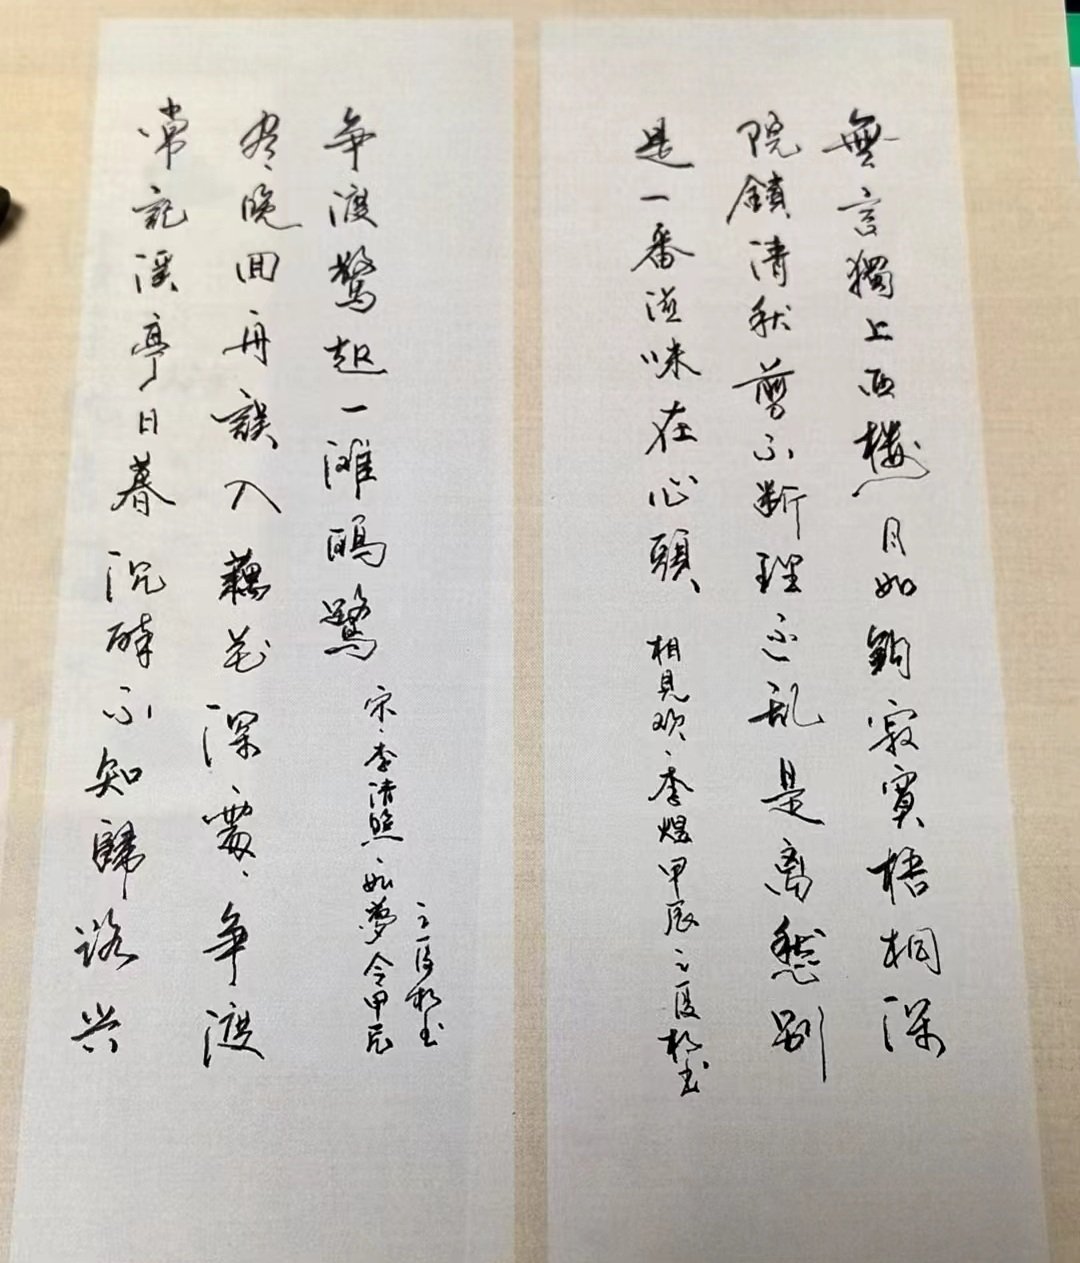 無言獨上西樓月如鉤寂寞梧桐深
院鎖清秋剪不断理还乱是离愁别
是一番滋味在心頭 相見欢、李煜甲辰之夏
常記溪亭日暮沉醉不知歸路兴
尽晚回舟誤入藕花深處、争渡
争渡驚起一滩鴎鷺 宋、李清照、如夢令甲辰
之夏